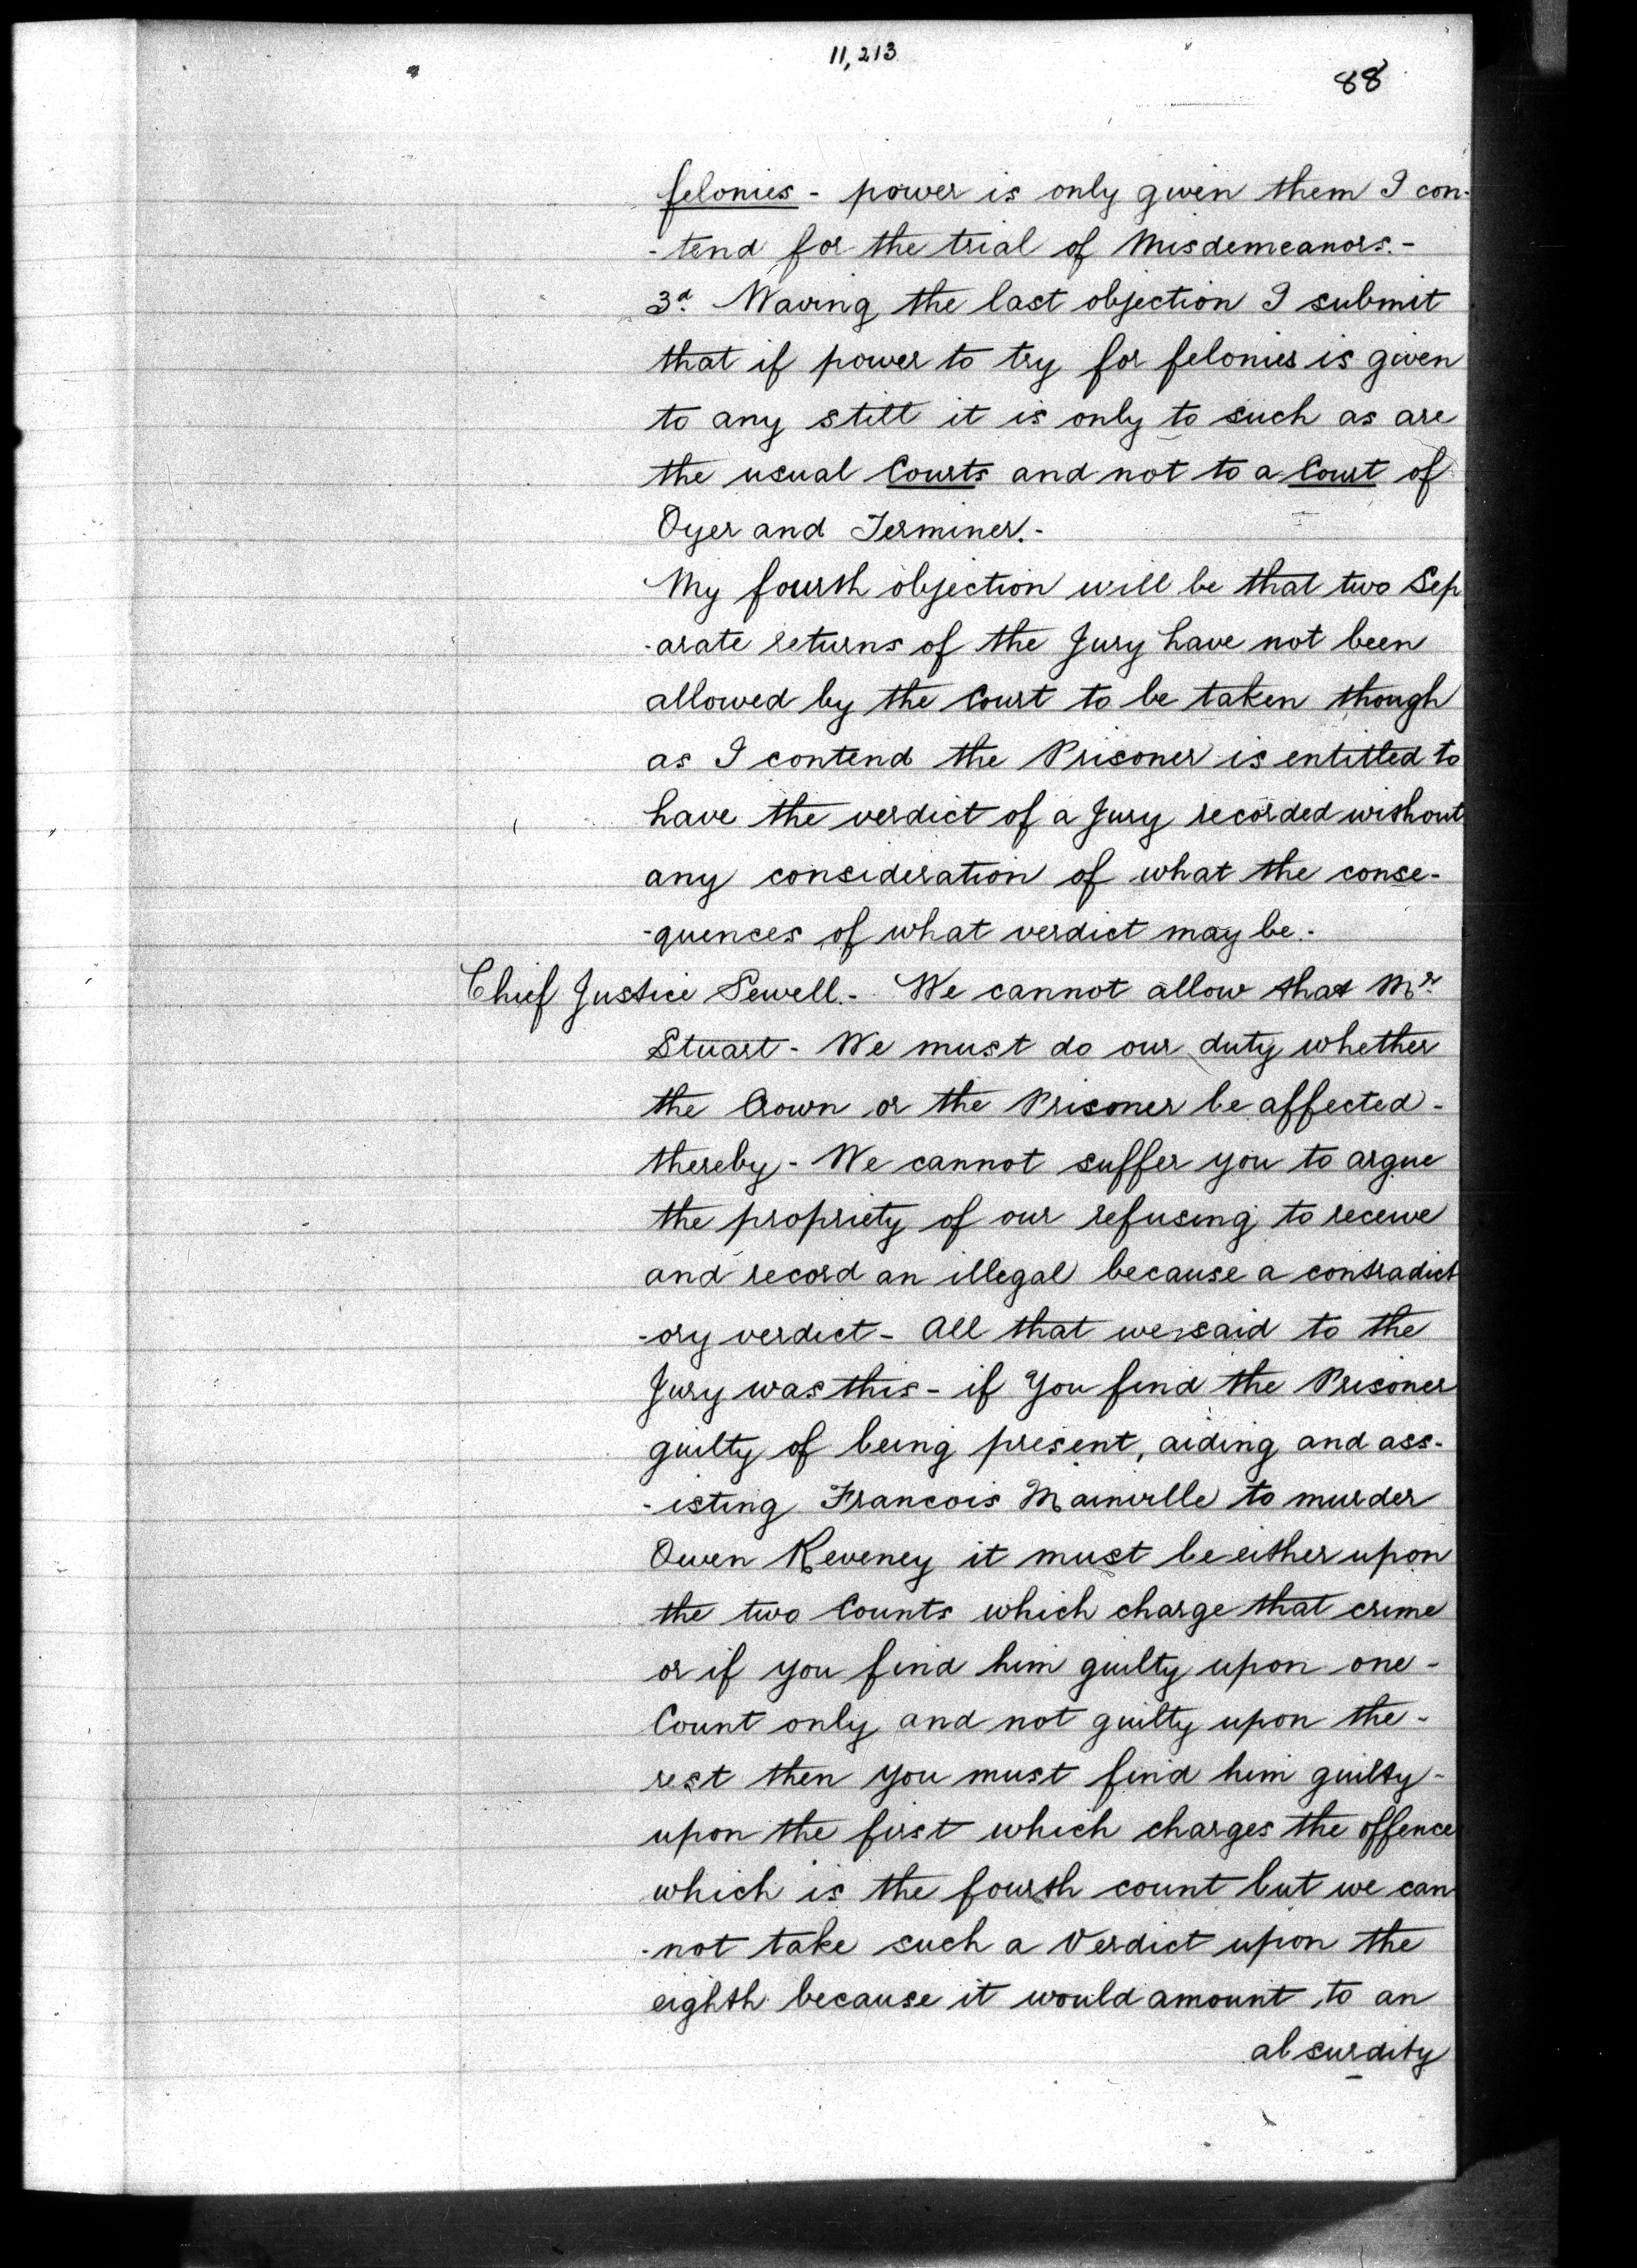 11,213
88
felonies - power is only given them I con-
-tend for the trial of Misdemeanors.-
3d. Waving the last objection I submit
that if power to try for felonies is given
to any still it is only to such as are
the usual Courts and not to a Court of
Oyer and Terminer.-
My fourth objection will be that two Sep
-arate returns of the Jury have not been
allowed by the Court to be taken though
as I contend the Prisoner is entitled to
have the verdict of a Jury recorded without
any consideration of what the conse-
-quences of what verdict may be.-
Chief Justice Sewell.- We cannot allow that Mr.
Stuart - We must do our duty whether
the Crown or the Prisoner be affected -
thereby - We cannot suffer you to argue
the propriety of our refusing to receive
and record an illegal because a contradict
-ory verdict - All that we said to the
Jury was this - if You find the Prisoner
guilty of being present, aiding and ass-
-isting Francois Mainville to murder
Owen Keveney it must be either upon
the two Counts which charge that crime
or if you find him guilty upon one -
Count only and not guilty upon the -
rest then you must find him guilty -
upon the first which charges the offence
which is the fourth count but we can
-not take such a Verdict upon the
eighth because it would amount to an
absurdity